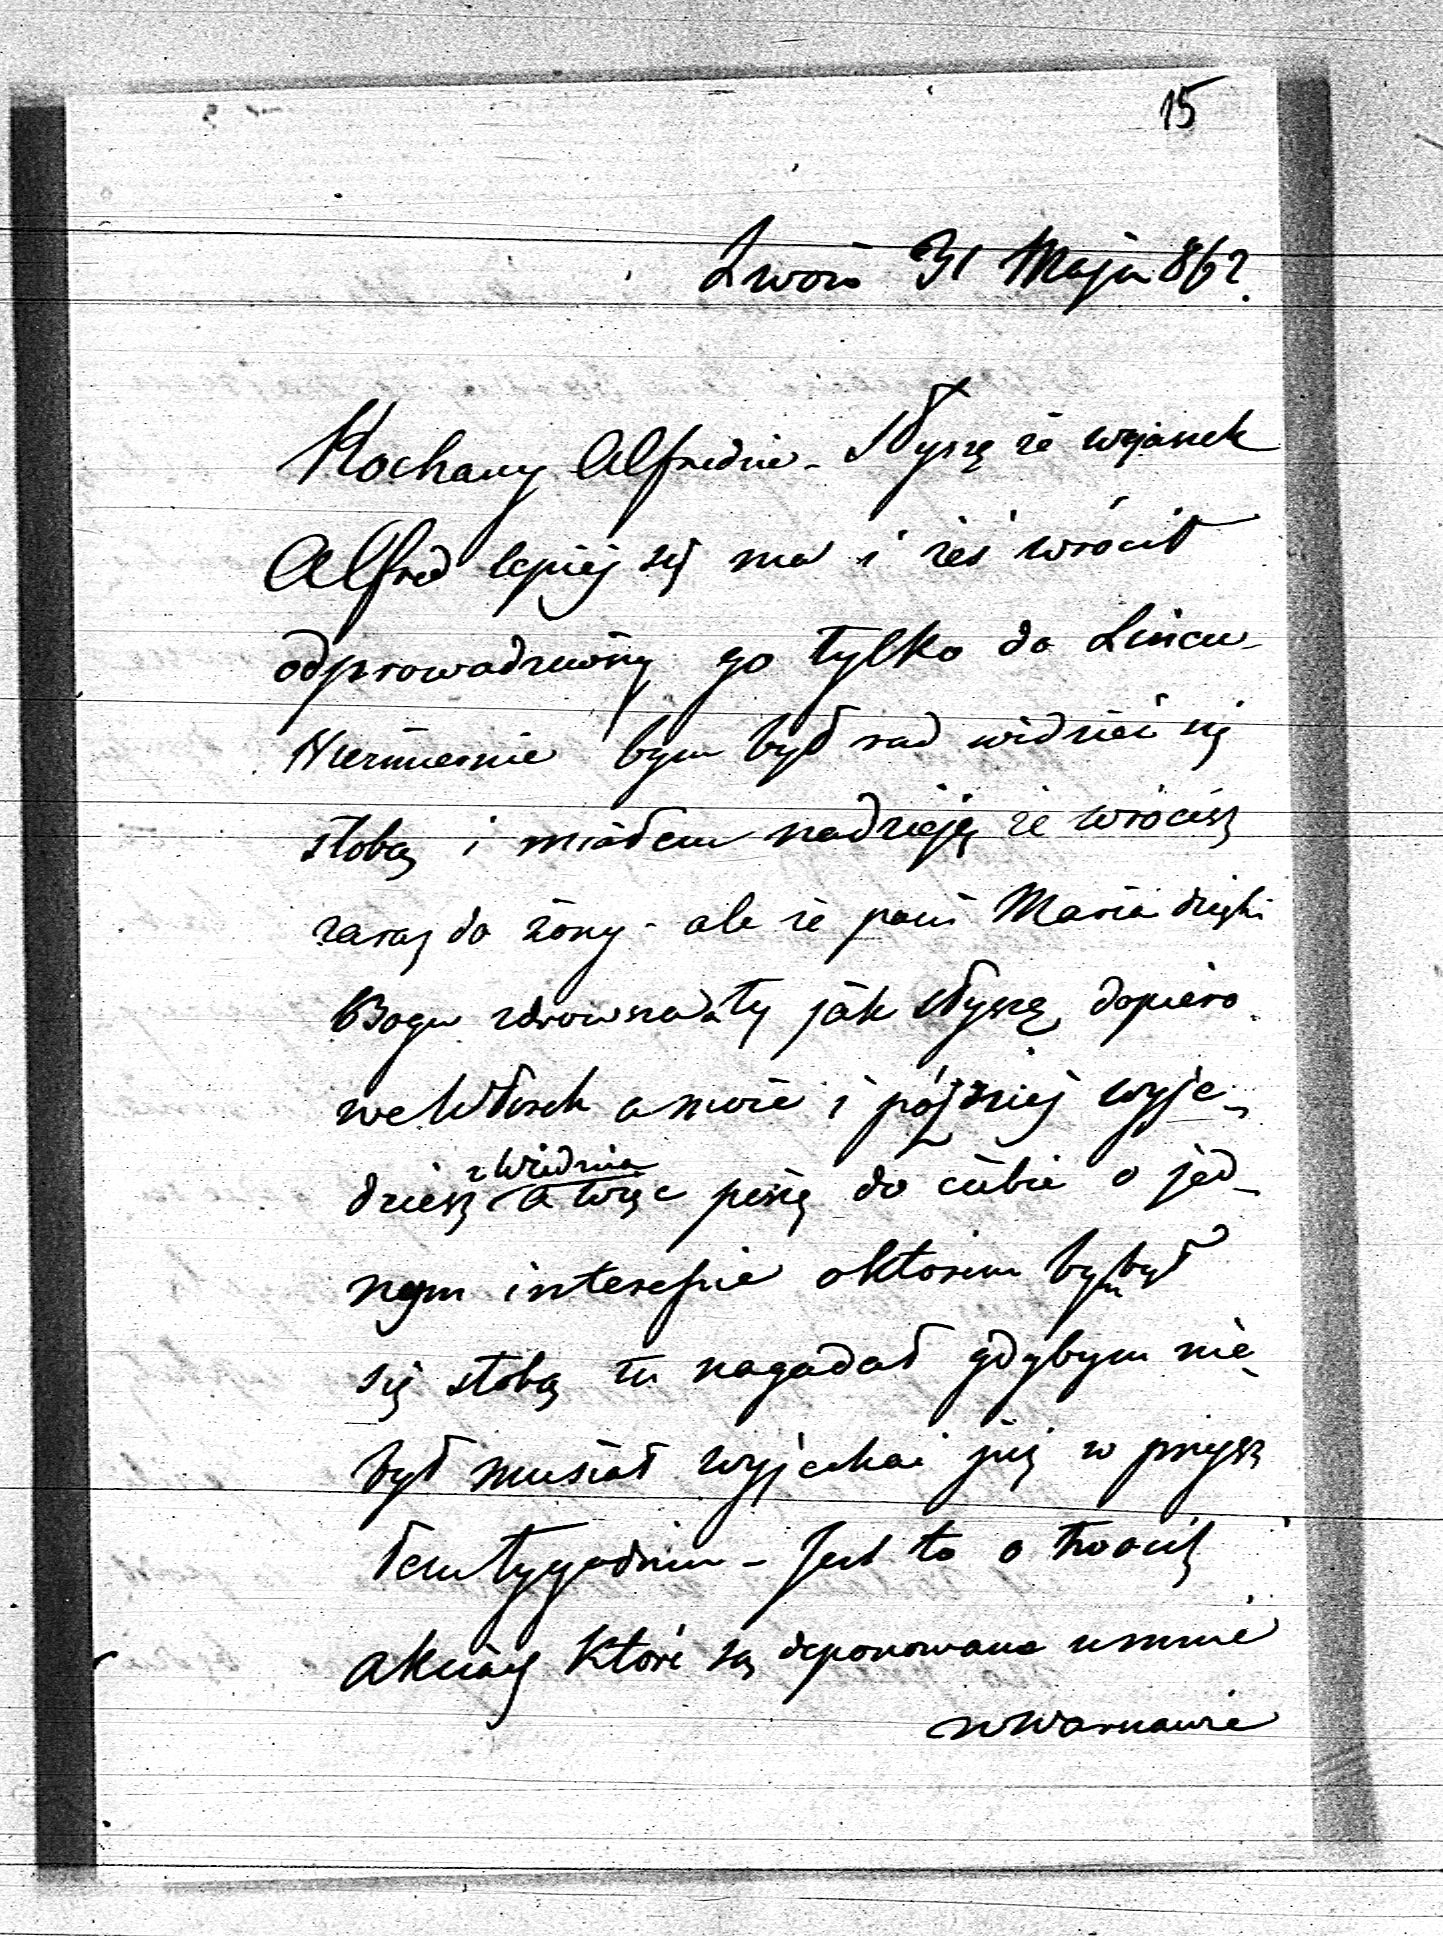 15
Lwów 31 Maja 862
Kochany Alfredzie - Słyszę że wujaszek
Alfred lepiej się ma i żeś wrócił
odprowadziwszy go tylko do Lincu -
Niezmiernie bym był rad widzieć się
stobą i miałem nadzieję że wrócisz
zaraz do żony - ale że pani Maria dzięki
Bogu zdrowsza a ty jak słyszę dopiero
we Wtorek a może i później wyje-
dziesz z Wiednia a więc piszę do ciebie o jed-
nym interesie októrim bym był
się stobą tu nagadał gdybym nie
był musiał wyjechać już w przysz
łem tygodniu - Jest to o twoich
akciach które są deponowane umnie
w Warszawie